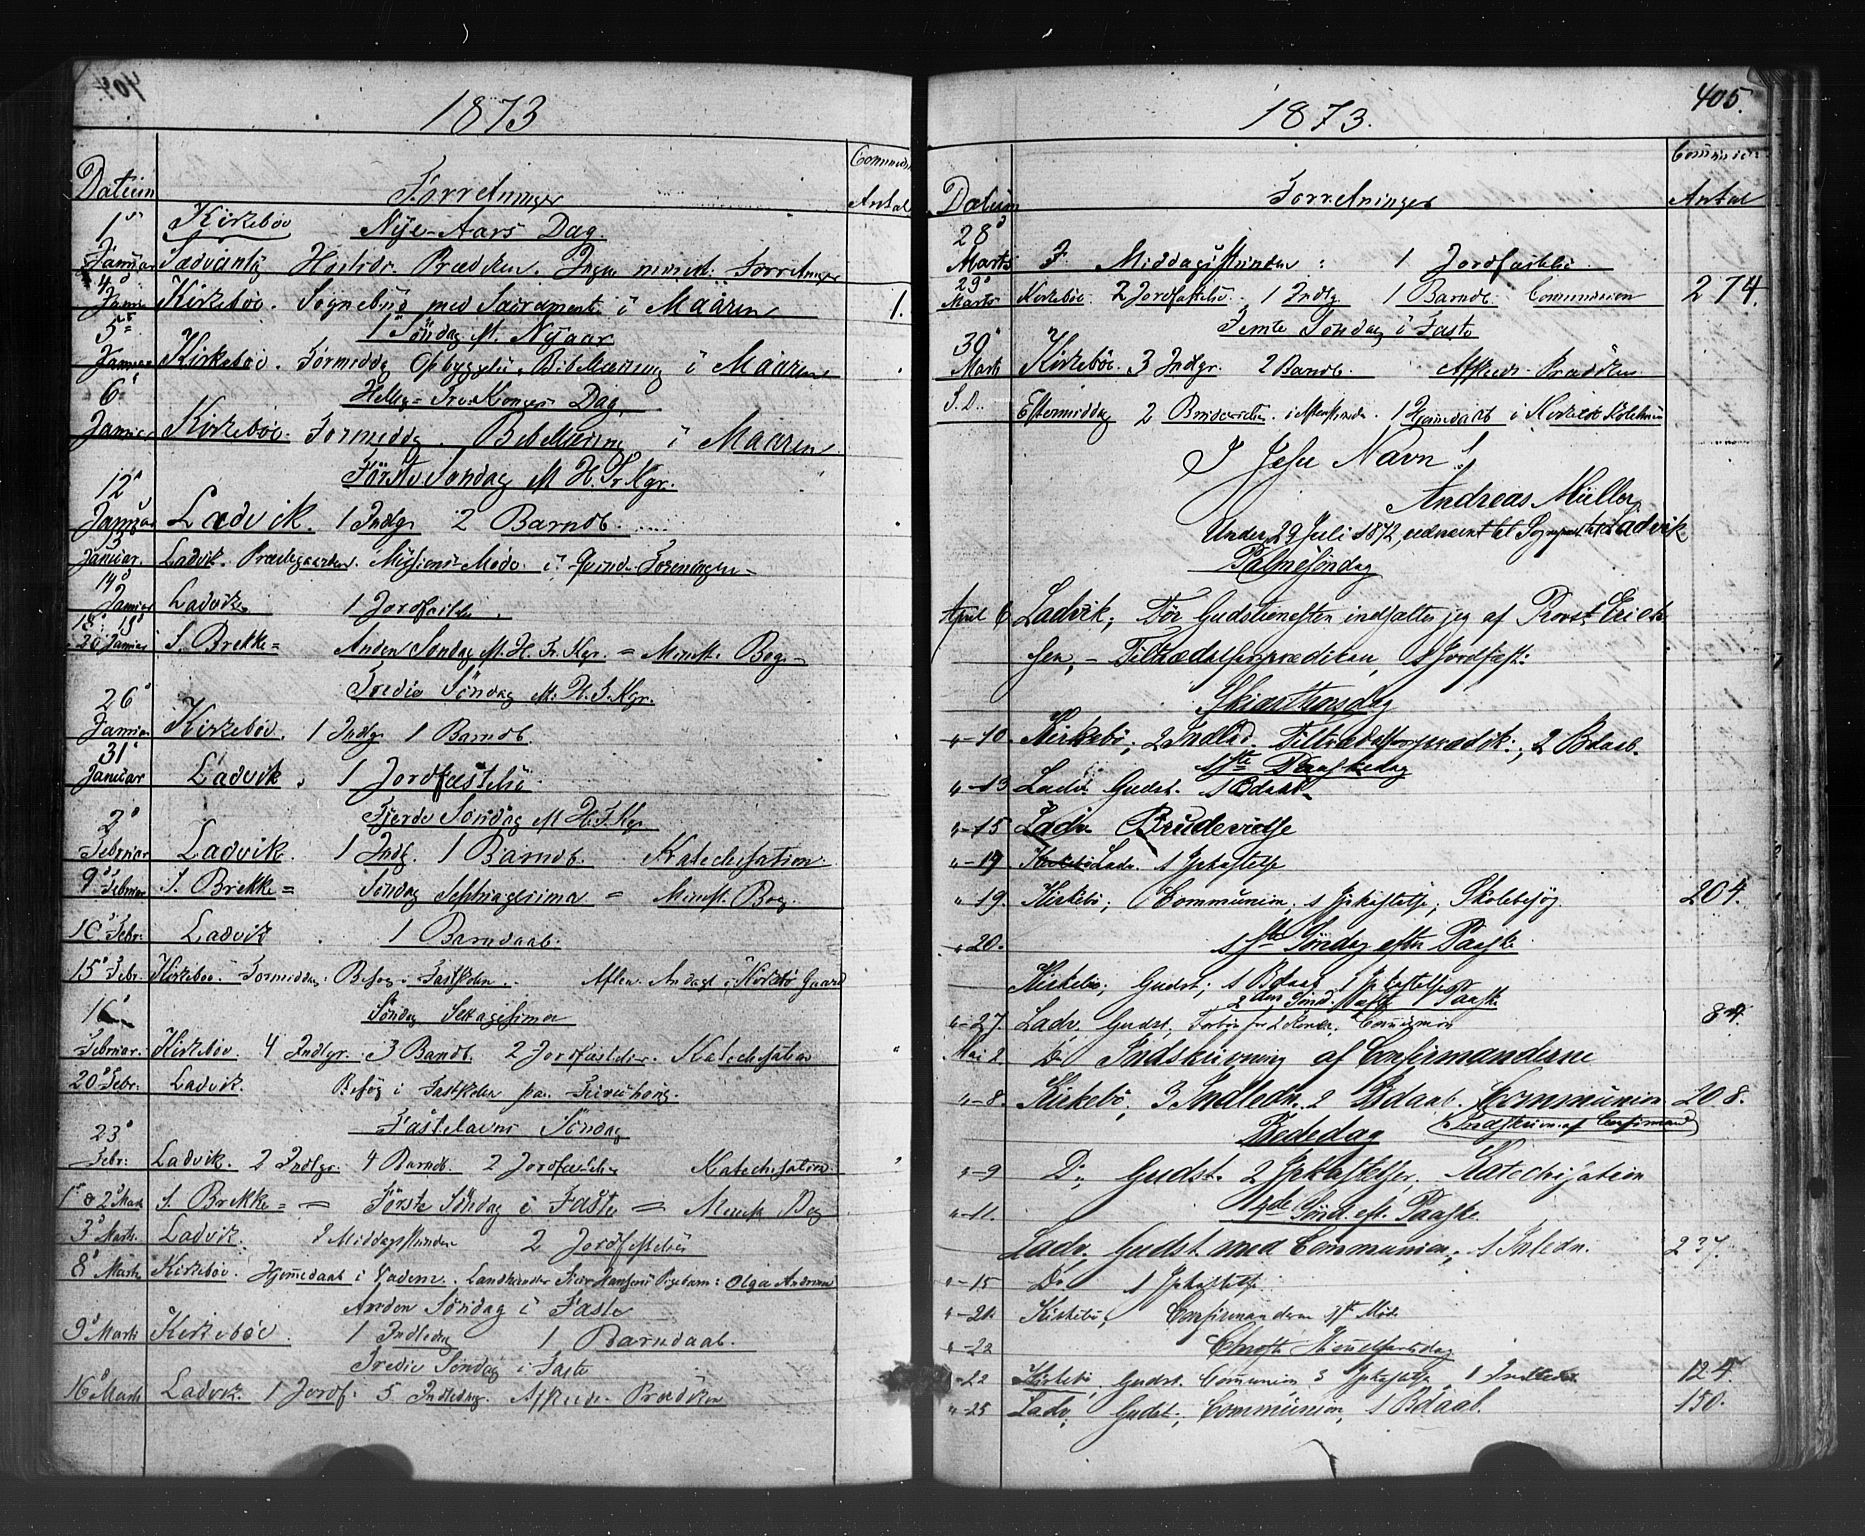 404
1873
Datum Forretninger Communic: Antal
1 Kirkebøe Nye-Aars Dag.
Januar Sædvanlig Høitids. Prædiken. Ingen minist: Forretninger
4 Janua Kirkebøe. Sognebud med Sacrament i Maaren 1.
5 1 Söndag M. Nÿaar
Januar Kirkebøe. Formiddag Opbyggelse, Bibellæsning i Maaren
6 Hellig-Tre-Konger Dag.
Januar Kirkebøe. Formiddg. Bibellæsning i Maaren
12 Förste Söndag M H. Tr. Kgr.
Januar Ladvik. 1 Indlgr 2 Barndb.
13 Januar. Ladvik. Præstegaarden. Missions-Møde i Qvinde-Foreningen
14 Januar Ladvik. 1 Jordfæstelse.
18. 19. 20 Januar S. Brekke = Anden Söndag M. H. Tr. Kgr. = Minist. Bog -
Tredie Söndag M: H. T. Kgr.
26 Januar Kirkebøe. 1 Indlgr 1 Barndb.
31 Januar Ladvik. 1 Jordfæstelse
Fjerde Söndag M H. T. Kgr
2 Februar Ladvik. 1 Indl. 1 Barndb. Katechisation.
9 Februar. S. Brekke = Söndag Septuagesima = Minist. Bog.
10 Febr: Ladvik. 1 Barndaab.
15 Febr. Kirkebøe. Formiddag: Besøg i Fastskolen. Aften Andagt i Kirkebø Gaard
16 Söndag Sexagesima
Februar. Kirkebøe. 4 Indlgr. 3 Bandb. 2 Jordfæstelser. Katechisation
20 Febr: Ladvik. Besøg i Fastskolen paa
23 Fastelavns Söndag
Febr: Ladvik. 2 Indlgr. 4 Barndb. 2 Jordfæstelser Katechisation.
1 & 2 Marts S. Brekke = = Første Söndag i Faste = Minist Bog
3 Marts Ladvik. I Middagsstunden 2 Jordfæstelser
8 Marts Kirkebøe. Hjemmedaab i Vadem. Landhandler Hansens Pigebarn: Olga Andrea
Anden Söndag i Faste
9 Marts Kirkebøe. 1 Indledng 1 Barndaab.
Tredie Söndag i Faste
16 Marts Ladvik. 1 Jordf: 5 Indledng. Afskeds-Prædiken
405.
1873.
Datum Forretninger Communic: Antal
28 Marts I Middagsstunden: 1 Jordfæstelse.
29 Marts Kirkebøe. 2 Jordfæstelse. 1 Indlg 1 Barndb. Communion 274.
Femte Söndag i Faste
30 Marts Kirkebøe. 3 Indlgr. 2 Barndb. Afskeds-Prædiken
S.D.. Eftermiddag 2 Brudevielser i Aftenstunden. 1 Hjemmedaab i Kirkebø
I Jesu Navn!
Andreas Müller
Under 29 Juli 1872, udnævnt til Sognepræst til Ladvik.
Palmesöndag
April 6 Ladvik; Før Gudstjenesten indsattes jeg af Provst Erich-
sen, - Tiltrædelsesprædiken, 1 Jordfæst:
Skjærthorsdag
" - 10. Kirkebø; 2 Indled. Tiltrædelsesprædik:; 2 Bdaab.
1ste Paaskedag
" - 13 Ladv. Gudst. 1 Bdaab.
" - 15 Ladv. Brudevielse
" - 19 Kirkebø Ladv. 1 Jpkastelse
" 19. Kirkebø; Communion, 1 Jpkastelse, Skolebesøg. 204.
" 20. 1ste Söndag efter Paaske
Kirkebø; Gudst; 1 Bdaab 1 Jpkastelse
2den Sönd. eft Paaske
" - 27. Ladv. Gudst, Forbøn for 2 Koner. Communion 84.
Mai 2. Do Indskrivning af Confirmanderne
" - 8. Kirkebø; 3 Indledn. 2 Bdaab. Communion 208.
Bededag (Indskrivn. af Confirmand)
" - 9 Do, Gudst. 2 Jpkastelser. Katechisation
" - 11. 4de Sönd. eft. Paaske
Ladv. Gudst med Communion, 1 Inledn. 237.
" - 15 Do 1 Jpkastelse
" - 21. Kirkebø, Confirmanderne 1ste Møde
" - 22 Christi Himmelfartsdag
- 22 Kirkebø, Gudst. Communion 3 Jpkastelse, 1 Indledn. 124.
" - 25 Ladv, Gudst, Communion, 1 Bdaab. 150.